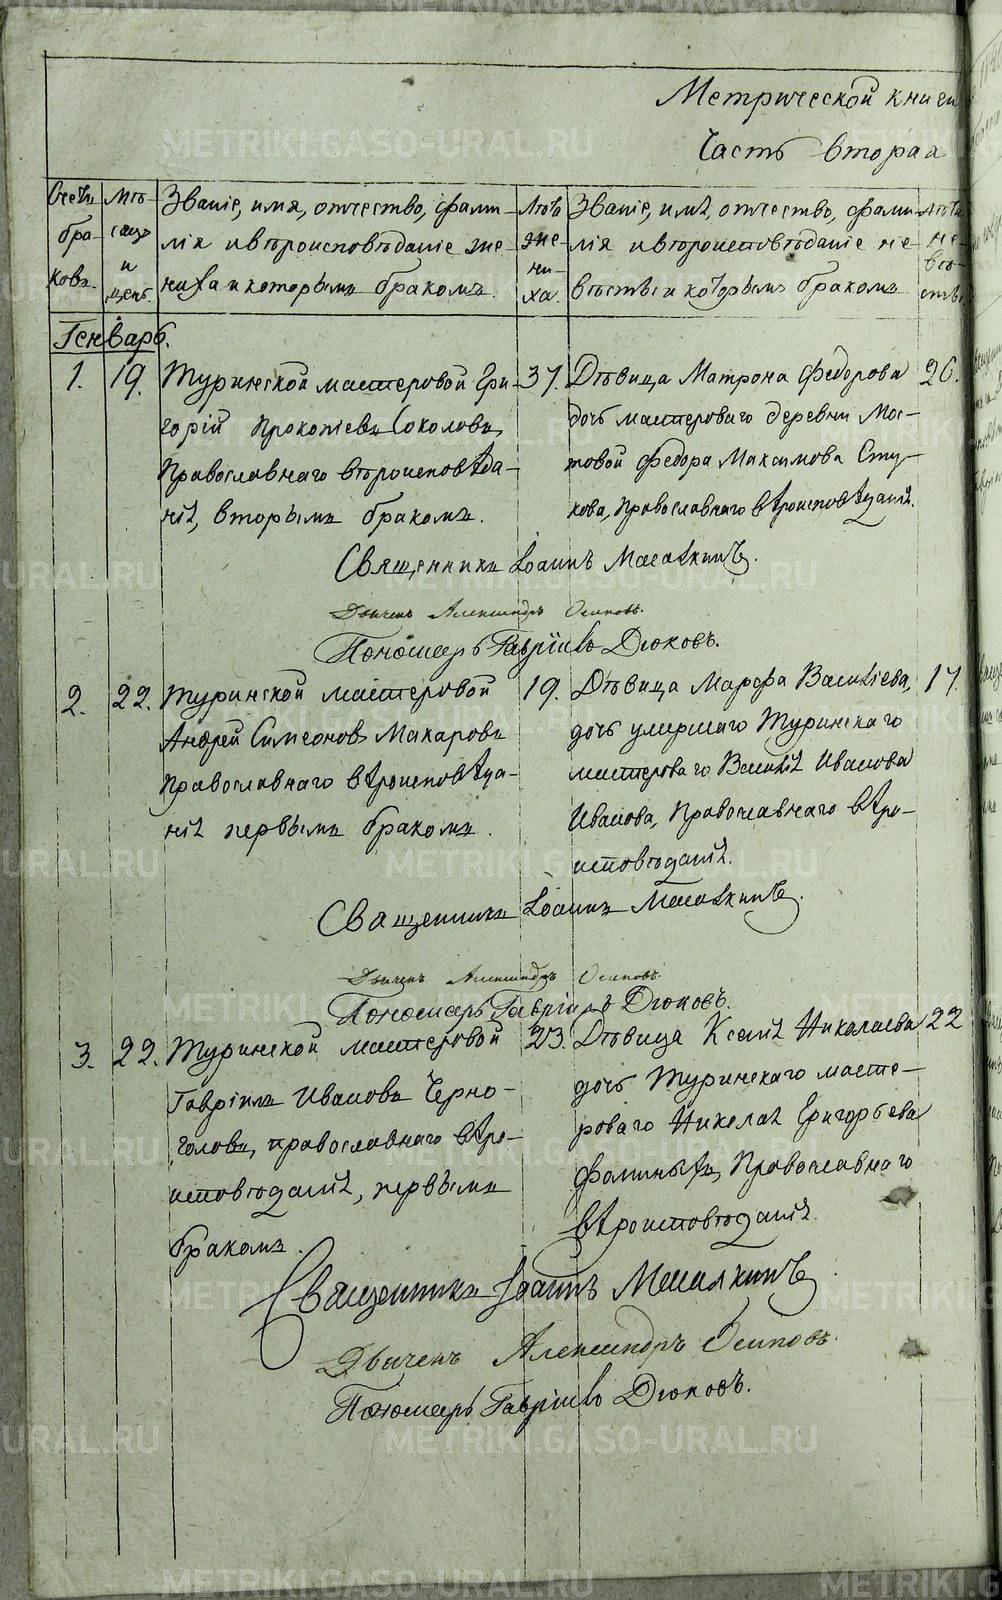 Метрической книги
Часть вторая
Счетъ браковъ.
Мѣсяцъ и день.
Званіе, имя, отчество, фамилія и вѣроисповѣданіе жениха и которымъ бракомъ.
Лѣта жениха.
Званіе, имя, отчество, фамилія и вѣроисповѣданіе невѣсты и которымъ бракомъ
Лѣта невѣсты
Генварь.
1. 19.
Туринской мастеровой Гри-
горій Прокопіевъ Соколовъ,
Православнаго вѣроисповѣда-
нія, вторымъ бракомъ.
37.
Дѣвица Матрона Федорова
дочь мастероваго деревни Мос-
товой Федора Максимова Сту-
кова, Православнаго вѣроисповѣданія.
26.
Священникъ Іоаннъ
Дьячекъ Александръ Осиповъ.
Пономарь Гавріилъ Дюковъ.
2. 22.
Туринской мастеровой
Андрей Симеоновъ Макаровъ
Православнаго вѣроисповѣда-
нія первымъ бракомъ.
19.
Дѣвица Марфа Василіева,
дочь умершаго Туринскаго
мастероваго Василія Иванова
Иванова, Православнаго вѣро-
исповѣданія.
17.
Священникъ Іоаннъ
Дьячекъ Александръ Осиповъ.
Пономарь Гавріилъ Дюковъ.
3. 22.
Туринской мастеровой
Гавріилъ Ивановъ Черно-
головъ, православнаго вѣро-
исповѣданія, первымъ
бракомъ.
23.
Дѣвица Ксенія Николаева
дочь Туринскаго масте-
роваго Николая Григорьева
Фоминыхъ, Православнаго
вѣроисповѣданія.
22
Священникъ Іоаннъ
Дьячекъ Александръ Осиповъ.
Пономарь Гавріилъ Дюковъ.
METRIKI.GASO-URAL.RU